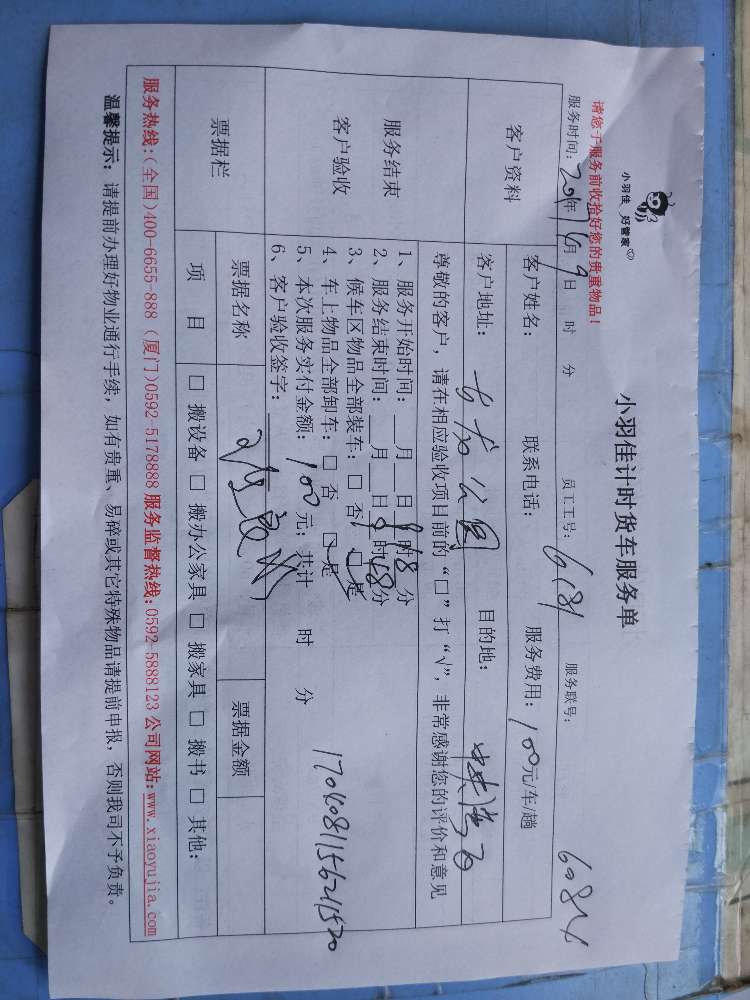 小羽佳 好管家
小羽佳计时货车服务单
请您于服务前收拾好您的贵重物品！
服务时间： 年 月9日 时 分 员工工号： 6181 服务联号： 6084
客户资料
客户姓名： 联系电话： 服务费用：100元/车/趟
客户地址： 公园 目的地：
服务结束
客户验收
尊敬的客户，请在相应验收项目前的“口”打“√”，非常感谢您的评价和意见
1、服务开始时间：__月__日 8时18分
2、服务结束时间：__月__日 时 分
3、候车区物品全部装车：□ 否 □ 是
4、车上物品全部卸车：□ 否 □ 是
5、本次服务实付金额：100元；共计 时 分
6、客户验收签字：
1704081156211520
票据栏
票据名称 票据金额
项 目 □ 搬设备 □ 搬办公家具 □ 搬家具 □ 搬书 □ 其他：
服务热线：(全国)400-6655-888 (厦门)0592-5178888 服务监督热线：0592-5888123 公司网站：www.xiaoyujia.com
温馨提示：请提前办理好物业通行手续，如有贵重、易碎或其它特殊物品请提前申报，否则我司不予负责。